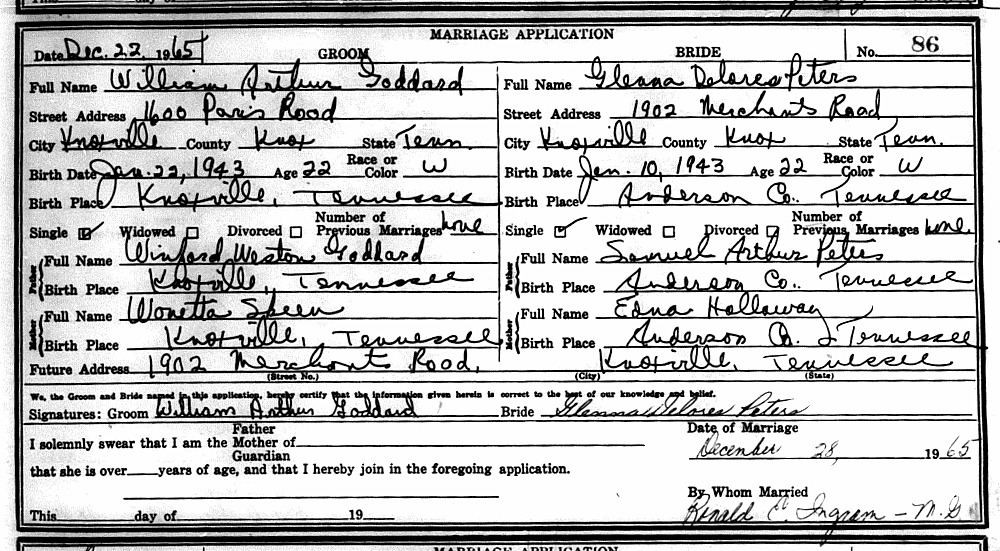 MARRIAGE APPLICATION
Date Dec. 22 1965 GROOM BRIDE No. 86
Full Name William Arthur Goddard Full Name Glenna Delores Peters
Street Address 1600 Paris Road Street Address 1902 Merchants Road
City Knoxville County Knox State Tenn. City Knoxville County Knox State Tenn.
Birth Date Jan. 22, 1943 Age 22 Race or Color W Birth Date Jan. 10, 1943 Age 22 Race or Color W
Birth Place Knoxville, Tennessee Birth Place Anderson Co., Tennessee
Single Widowed Divorced Number of Previous Marriages none Single Widowed Divorced Number of Previous Marriages none
Father Full Name Winford Weston Goddard Father Full Name Samuel Arthur Peters
Birth Place Knoxville, Tennessee Birth Place Anderson Co., Tennessee
Mother Full Name Wonetta Mother Full Name Edna Holloway
Birth Place Knoxville, Tennessee Birth Place Anderson Co., Tennessee
Future Address 1902 Merchants Road, Knoxville, Tennessee
(Street No.) (City) (State)
We, the Groom and Bride named in this application, hereby certify that the information given herein is correct to the best of our knowledge and belief.
Signatures: Groom William Arthur Goddard Bride Glenna Delores Peters
Father Date of Marriage
I solemnly swear that I am the Mother of December 28, 1965
Guardian
that she is over years of age, and that I hereby join in the foregoing application.
By Whom Married
This day of 19 Ronald C. Ingram - M.G
MARRIAGE APPLICATION